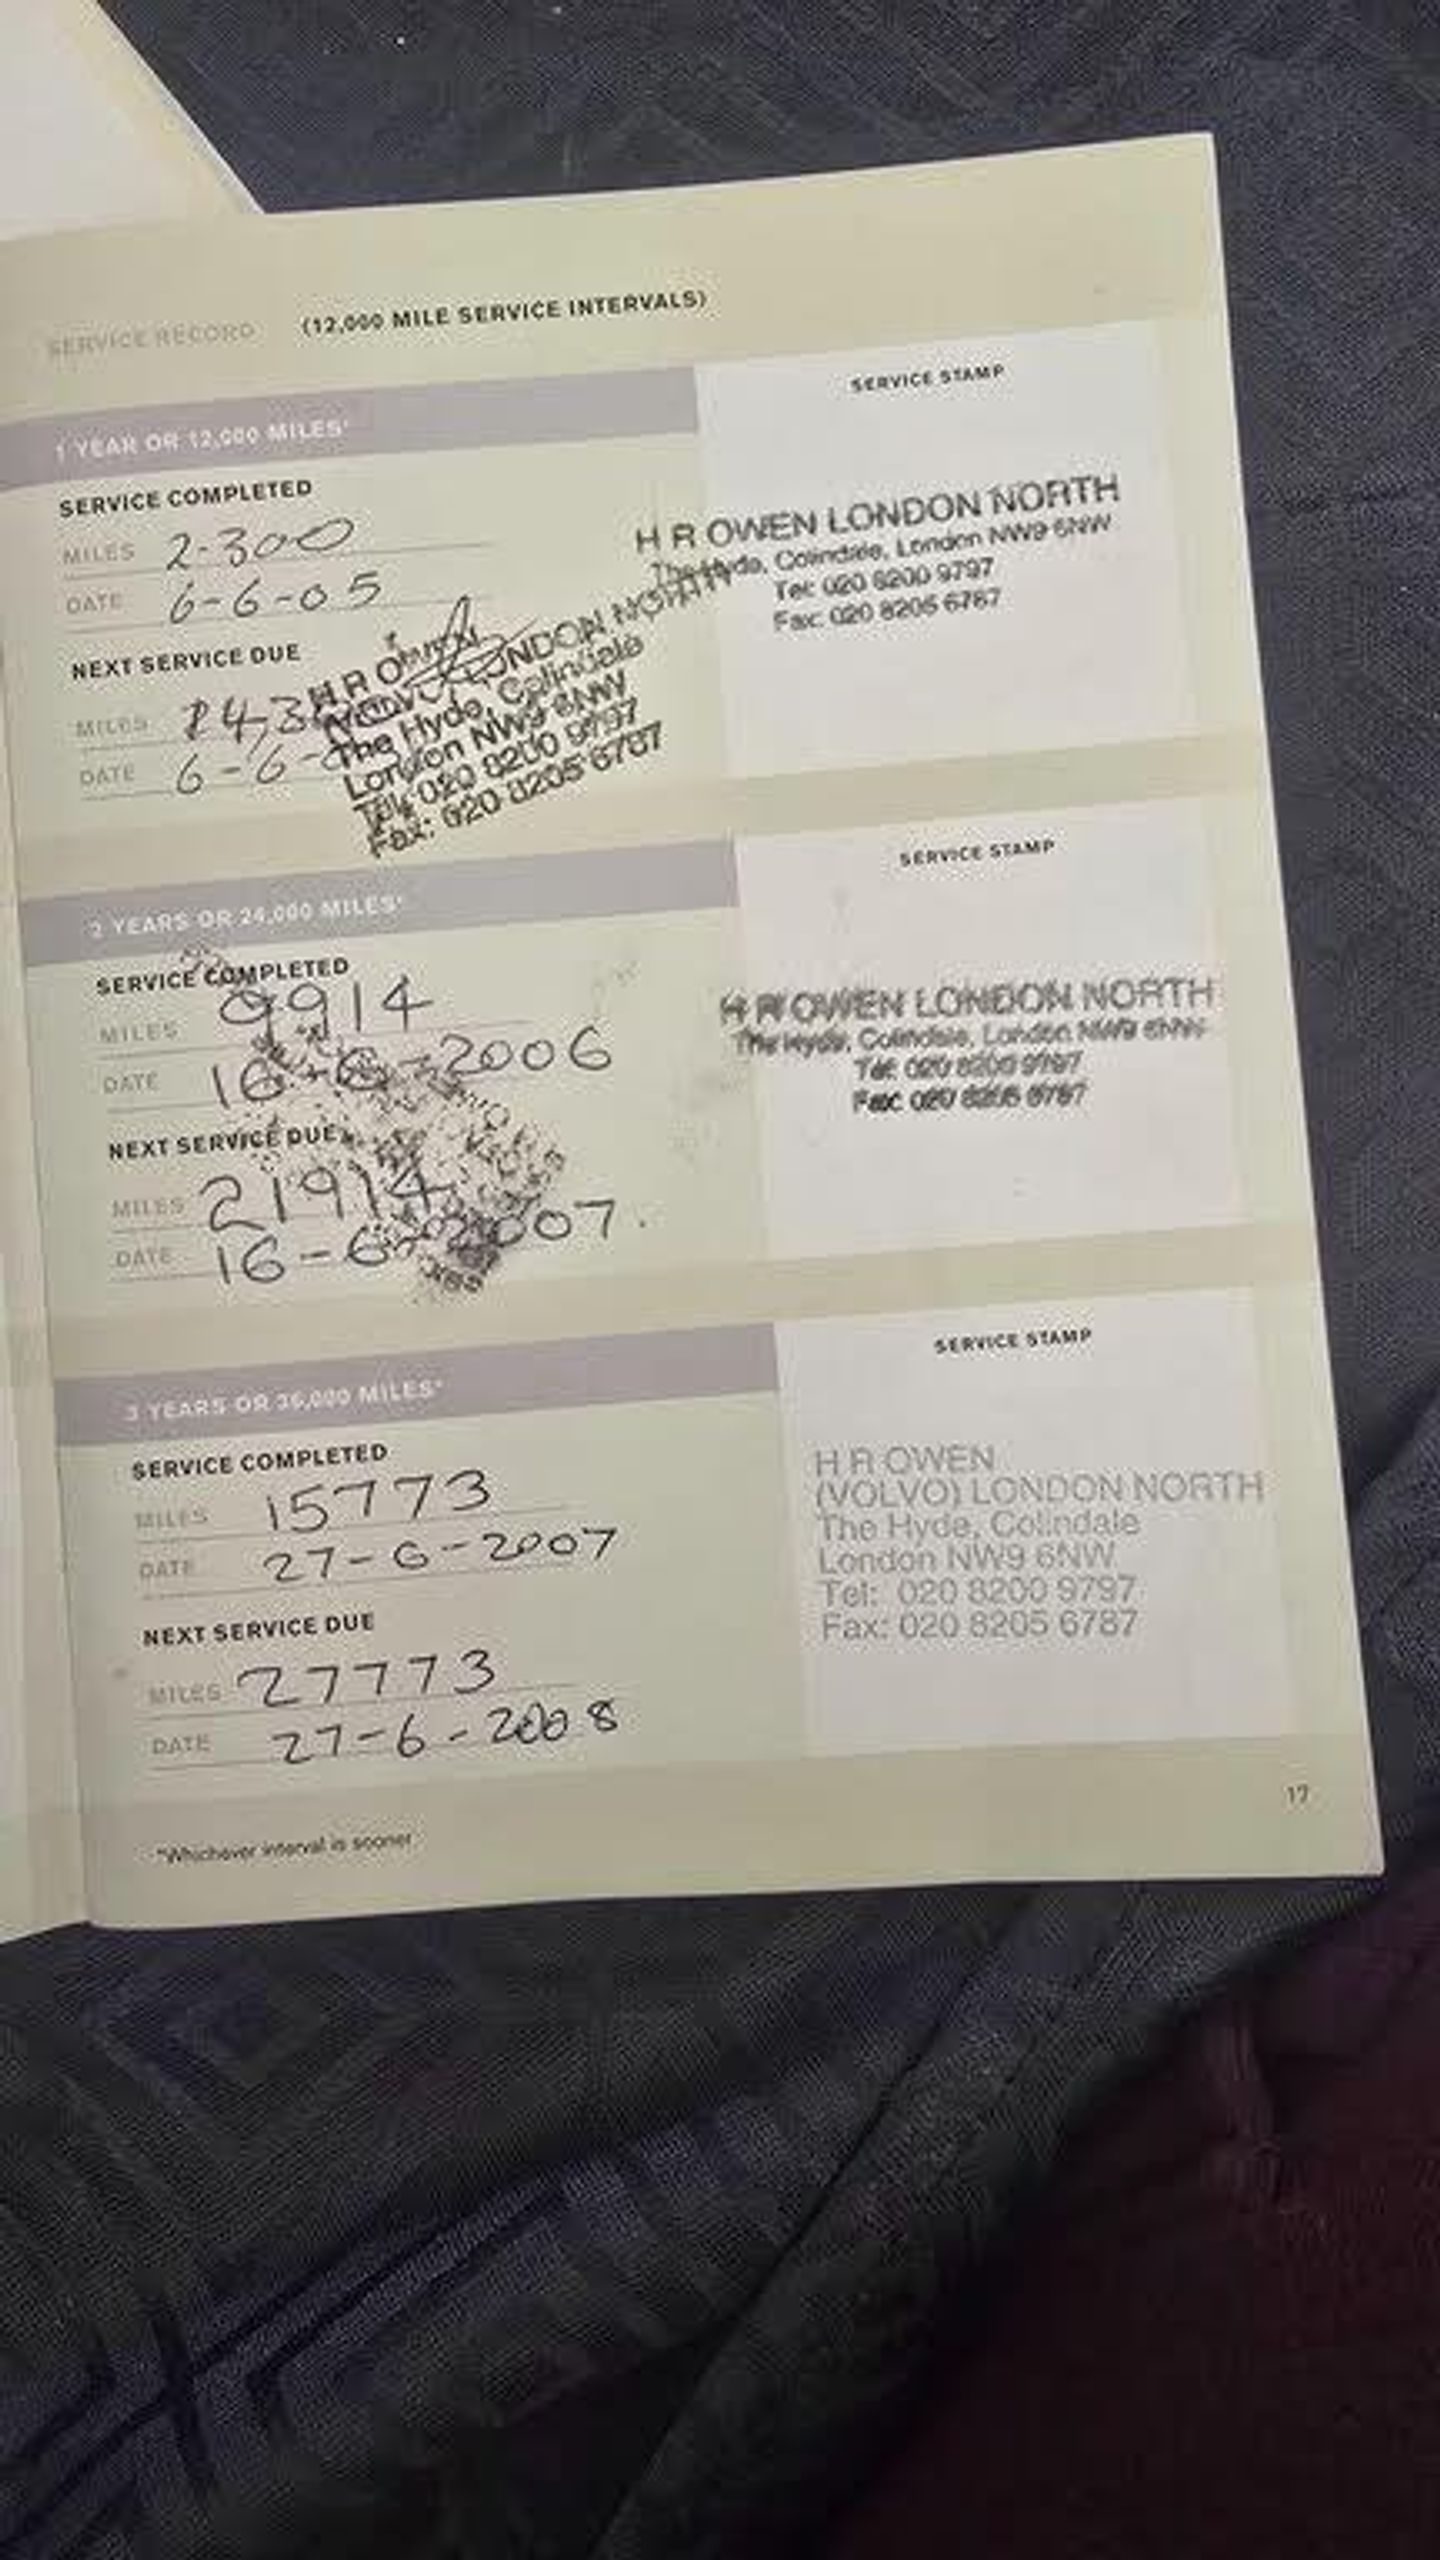 SERVICE RECORD (12,000 MILE SERVICE INTERVALS)
1 YEAR OR 12,000 MILES*
SERVICE COMPLETED
MILES 2-300
DATE 6-6-05
NEXT SERVICE DUE
MILES 14,3
DATE 6-6-
H R OWEN
LONDON NORTH
The Hyde, Colindale
London NW9 6NW
Tel: 020 8200 9797
Fax: 020 8205 6787
SERVICE STAMP
H R OWEN LONDON NORTH
The Hyde, Colindale, London NW9 6NW
Tel: 020 8200 9797
Fax: 020 8205 6787
2 YEARS OR 24,000 MILES*
SERVICE COMPLETED
MILES 9914
DATE 16-6-2006
NEXT SERVICE DUE
MILES 21914
DATE 16-6-2007.
SERVICE STAMP
H R OWEN LONDON NORTH
The Hyde, Colindale, London NW9 6NW
Tel: 020 8200 9797
Fax: 020 8205 6787
3 YEARS OR 36,000 MILES*
SERVICE COMPLETED
MILES 15773
DATE 27-6-2007
NEXT SERVICE DUE
MILES 27773
DATE 27-6-2008
SERVICE STAMP
H R OWEN
(VOLVO) LONDON NORTH
The Hyde, Colindale
London NW9 6NW
Tel: 020 8200 9797
Fax: 020 8205 6787
*Whichever interval is sooner
17